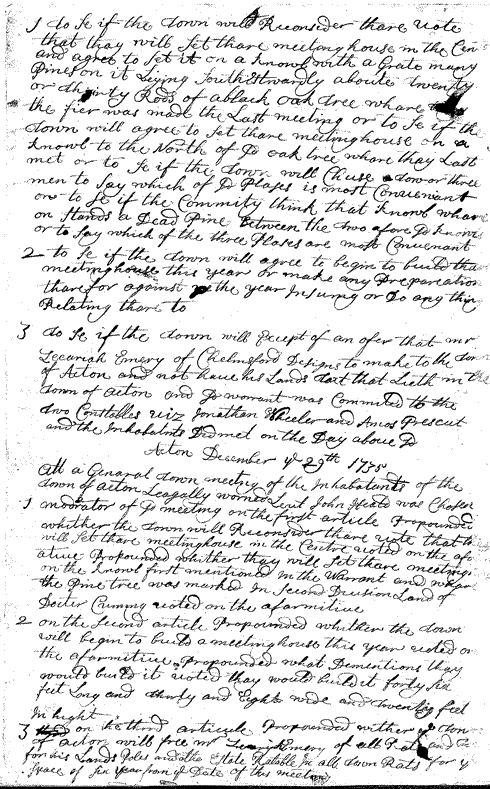 1 to Se if the town will Reconsider thare vote
that thay will Set thare meetinghouse in the Cen
and agree to Set it on a knowl with a Grate many
Pines on it Lying Southestwardly aboute twenty
or thirty Rods of a black oak tree whare
the fier was made the Last meeting or to Se if the
town will agree to Set thare meetinghouse on a
knowl to the North of Sd oak tree whare thay Last
met or to Se if the town will Chuse a tow or three
men to Say which of Sd Plases is most Convenant
or to Se if the Commity think that knowl whare
on Stands a Dead Pine between the two afore Sd knowls
or to Say which of the three Plases are most Convenant
2 to Se if the town will agree to begin to build thare
meetinghouse this year or make any Preparation
tharefor against the year Insuing or Do any thing
Relating thare to
3 to Se if the town will Except of an ofer that mr
Zecariah Emery of Chelmsford Designs to make to the town
of Acton and not have his Lands that Lieth in the
town of acton and Sd worant was Commited to the
two Constelles viz Jonathan Wheeler and Amos Prescut
and the Inhabitants Did met on the Day above Sd
Acton December ye 29th 1735
Att a Genaral town meeting of the Inhabatants of the
town of acton Leagally worned Leut John Heald was Chosen
1 modrator of Sd meeting on the first article Propounded
whither the town will Reconsider thare vote that th
will Set thare meetinghouse in the Centre voted on the af
ative Propounded whether thay will Set thare meeting
on the knowl first mentioned In the Warrant and whare
the Pine tree was marked In Second Division Land of
Docter Cummy voted on the afarmitive
2 on the Second article Propounded whether the town
will begin to build a meetinghouse this year voted on
the afarmitive Propounded what Dementions thay
would build it voted thay would build it forty Six
feet Long and thirty and Eight wide and twenty feet
In hight
3 on the third articule Propounded wither ye town
of acton will free mr Emery of all Rats and
for his Lands Poles and the Estate Ratable In all town Rats for ye
Space of Six year from ye Date of this meeting